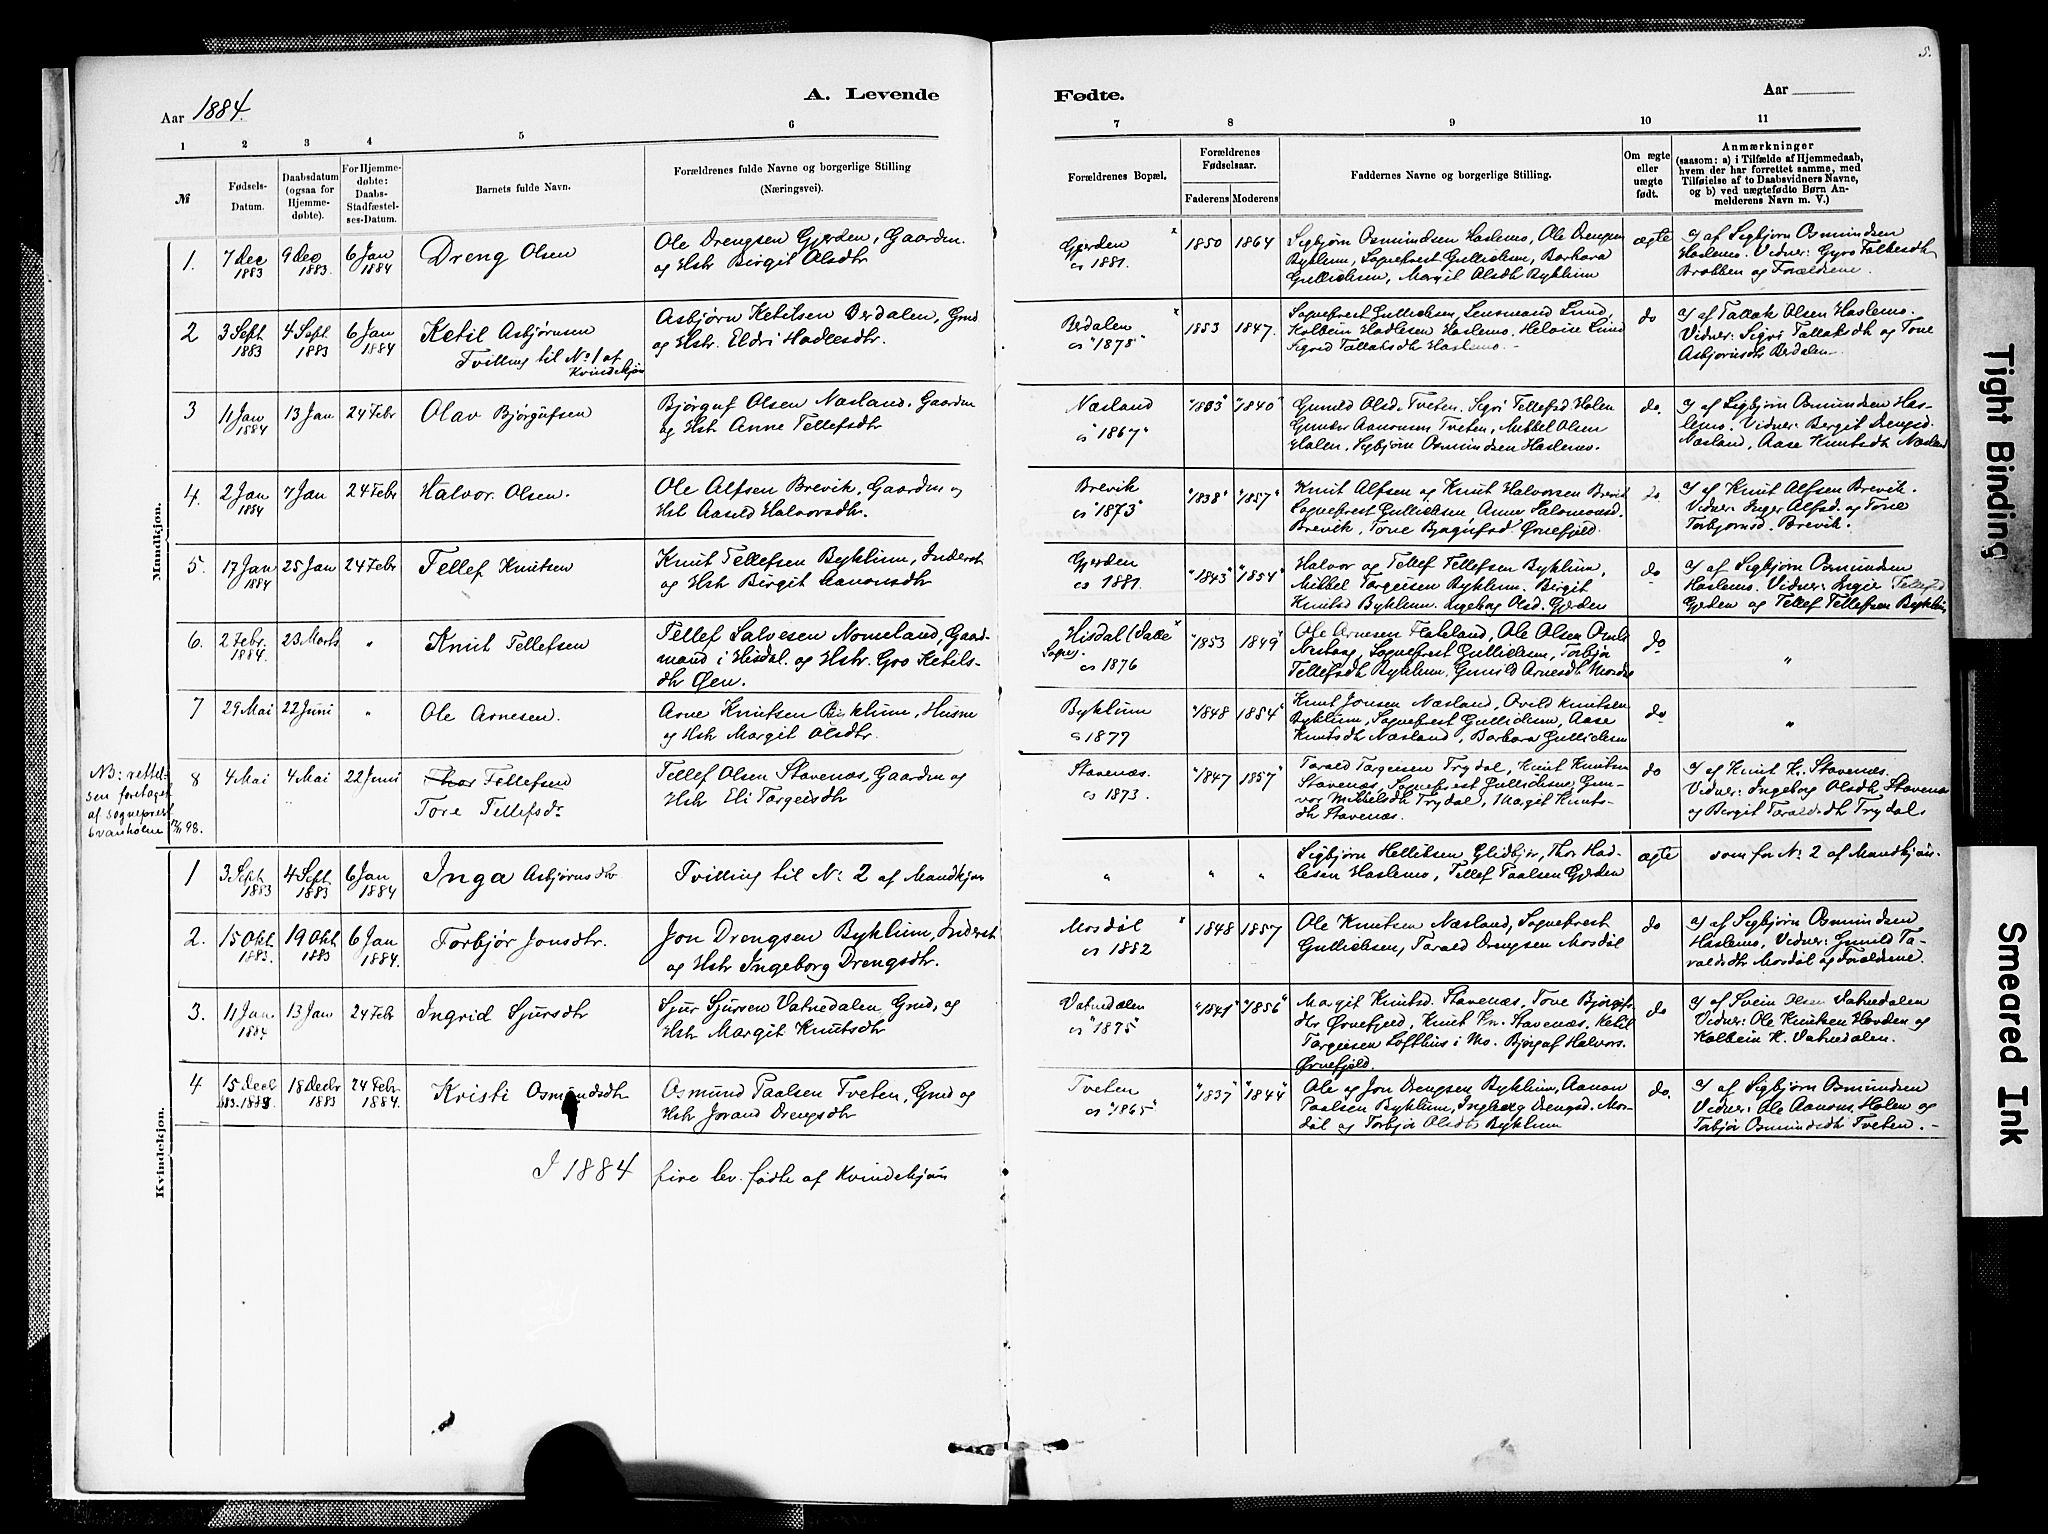 5.
A. Levende Fødte.
Aar 1884.
Aar
1 2 3 4 5 6 7 8 9 10 11
№
Fødsels-Datum.
Daabsdatum (ogsaa for Hjemme-døbte).
For Hjemme-døbte: Daabs-Stadfæstel-ses-Datum.
Barnets fulde Navn.
Forældrenes fulde Navne og borgerlige Stilling (Næringsvei).
Forældrenes Bopæl.
Forældrenes Fødselsaar.
Faderens Moderens
Faddernes Navne og borgerlige Stilling.
Om ægte eller uægte født.
Anmærkninger
(saasom: a) i Tilfælde af Hjemmedaab,
hvem der har forrettet samme, med
Tilføielse af to Daabsvidners Navne,
og b) ved uægtefødte Børn An-
melderens Navn m. V.)
Mandkjøn.
1. 7 Dec 1883 9 Dec 1883. 6 Jan 1884 Dreng Olsen
Ole Drengsen Gjerden, Gaardm.
og Hstr Birgit Olsdtr
Gjerden
cs 1881.
1850 1864
Sigbjørn Osmundsen Haslemo, Ole Drengsen
Byklum, Sogneprest Gullichsen, Barbara
Gullichsen, Margit Olsdtr Byklum
ægte
a/ af Sigbjørn Osmundsen
Haslemo. Vidner: Gyro Falkesdtr
Brokken og Forældrene.
2 3 Sept 1883 4 Sept. 1883 6 Jan 1884 Ketil Asbjørnsen
Tvilling til No 1 af
Kvindekjøn
Asbjørn Ketilsen Berdalen, Gmd
og Hstr. Eldri Hadlesdtr.
Berdalen
cs "1878"
1853 1847.
Sogneprest Gullichsen, Lensmand Lund,
Kolbein Hadlesen Haslemo, Heloise Lund
Sigrid Tallaksdtr Haslemo.
do
a/ af Tallak Olsen Haslemo.
Vidner: Sigri Tallaksdtr og Tone
Asbjørnsdtr Berdalen
3 11 Jan 1884 13 Jan 24 Febr Olav Bjørgufsen
Bjørguf Olsen Næsland. Gaardm
og Hstr Anne Tellefsdtr
Næsland
cs "1867"
"1833" "1840"
Gunild Olsd. Tveten. Sigri Tellefsd Holen
Gunder Aanonsen Tveten, Mikkel Olsen
Holen, Sigbjørn Osmundsen Haslemo.
do.
a/ af Sigbjørn Osmundsen Has-
lemo. Vidner: Bergit Drengsd.
Næsland, Aase Knutsdtr Næsland
4. 2 Jan 1884 7 Jan 24 Febr Halvor Olsen.
Ole Alfsen Brevik, Gaardm og
Hstr Aasild Halvorsdtr.
Brevik
cs "1873"
"1838" "1857"
Knut Alfsen og Knut Halvorsen Brevik
Sogneprest Gullichsen Anne Salomonsd.
Brevik, Tone Bjøgufsd Ørnefjeld.
do.
a/ af Knut Alfsen Brevik.
Vidner: Inger Alfsd. og Tone
Torbjørnsd. Brevik.
5. 17 Jan 1884 25 Jan 24 Febr Tellef Knutsen
Knut Tellefsen Byklum, Inderst
og Hstr Birgit Aanonsdtr
Gjerden
cs 1881.
"1843" "1854"
Halvor og Tellef Tellefsen Byklum,
Mikkel Targeisen Byklum. Birgit
Knutsd Byklum. Ingebog Olsd. Gjerden
do
a/ af Sigbjørn Osmundsen
Haslemo. Vidner: Ingier Tellefsd
Gjerden og Tellef Tellefsen Byklum
6. 2 Febr. 1884. 23 Marts " Knut Tellefsen
Tellef Salvesen Nomeland, Gaard-
mand i Hisdal. og Hstr. Gro Ketils-
dtr Øen.
Hisdal (Valle
Sogn)
cs 1876
"1853 1849"
Ole Arnesen Flateland, Ole Olsen
Nestaag, Sogneprest Gullichsen, Torbjør
Tellefsdtr Byklum, Gunild Arnesdtr
do
"
7 29 Mai 22 Juni " Ole Arnesen.
Arne Knutsen Byklum, Husm
og Hstr Margit Olsdtr.
Byklum
cs 1877
"1848 1854"
Knut Jonsen Næsland, Ovild Knutsen
Byklum, Sogneprest Gullichsen, Aase
Knutsdtr Næsland, Barbara Gullichsen
do
"
NB: rettel-
sen foretaget
af sogneprest
Svanholm 98.
8 4 Mai 4 Mai 22 Juni Thor Tellefsen
Tore Tellefsdr
Tellef Olsen Stavenæs, Gaardm og
Hstr Eli Targeisdtr
Stavenæs.
cs 1873.
"1847 1857"
Tarald Targeisen Trydal, Knut Knutsen
Stavenæs, Sogneprest Gullichsen, Gun-
vor Mikkelsdtr Trydal, Margit Knuts-
dtr Stavenæs.
do
a/ af Knut K. Stavenæs.
Vidner: Ingebog Olsdtr Stavenæs
og Bergit Taraldsdtr Trydal.
Kvindekjøn.
1 3 Sept 1883 4 Sept 1883 6 Jan 1884 Inga Asbjørnsdtr
Tvilling til No 2 af Mandkjøn
" " "
Sigbjørn Helliksen Glidbjør, Thor Had-
lesen Haslemo, Tellef Paalsen Gjerden
ægte
som for No 2 af Mandkjøn.
2. 15 Okt. 1883. 19 Okt 1883 6 Jan 1884. Torbjør Jonsdtr.
Jon Drengsen Byklum, Inderst
og Hstr Ingeborg Drengsdtr.
Mosdøl
cs 1882
1848 1857
Ole Knutsen Næsland, Sogneprest
Gullichsen, Tarald Drengsen Mosdøl
do
a/ af Sigbjørn Osmundsen
Haslemo, Vidner: Gunild Ta-
raldsdtr Mosdøl og Forældrene.
3. 11 Jan 1884. 13 Jan 24 Febr Ingrid Sjursdtr
Sjur Sjursen Vatnedalen, Gmd, og
Hstr Margit Knutsdtr
Vatnedalen
cs "1875"
"1841" "1856"
Margit Knutsd. Stavenæs, Tove Bjørgufs-
dtr Ørnefjeld, Knut Kn. Stavenæs, Ketil
Targeisen Lofthus i Mo. Bjørguf Halvors.
Ørnefjeld.
do
a/ af Svein Olsen Vatnedalen
Vidner: Ole Knutsen Hovden og
Kolbein K. Vatnedalen.
4 15 Decb. 1883. 18 Decbr 1883 24 Febr. 1884. Kristi Osmundsdtr
Osmund Paalsen Tveten, Gmd og
Hstr Jorand Drengsdtr
Tveten
cs "1865"
"1837" "1844"
Ole og Jon Drengsen Byklum, Aanon
Paalsen Byklum, Ingborg Drengsd. Mos-
døl og Torbjør Olsdtr Byklum
do.
a/ af Sigbjørn Osmundsen
Vidner: Ole Aanons. Holen og
Torbjør Osmundsdtr Tveten.
I 1884 fire lev. fødte af Kvindekjøn
Tight Binding
Smeared Ink